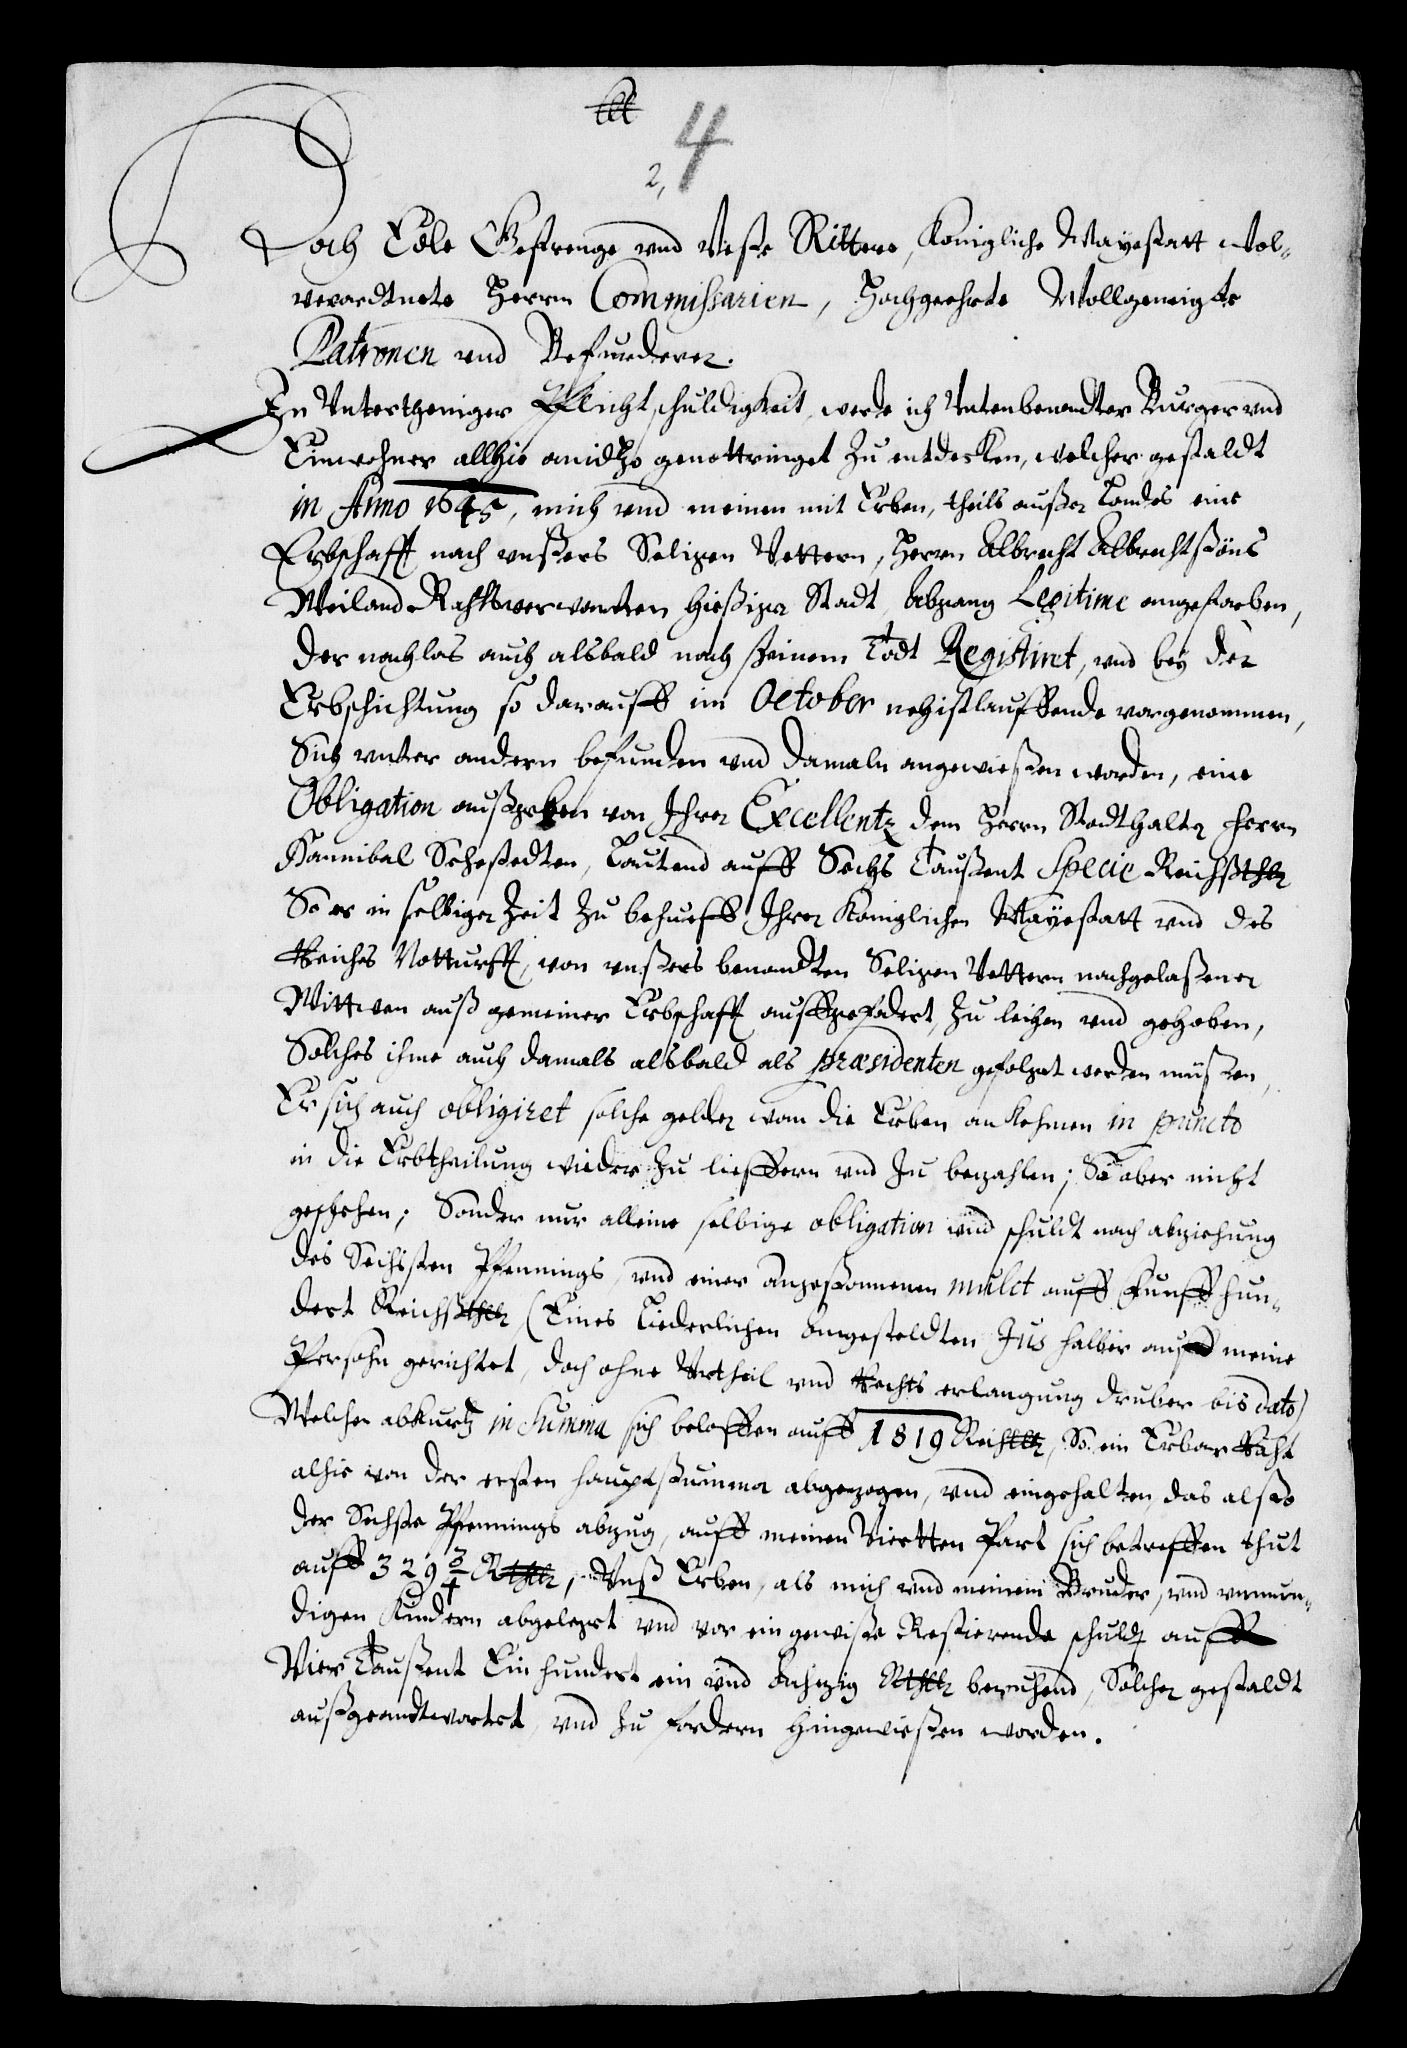 4
2,
Hoch Edle Gestrenge vnd Veste Rittere, Königliche Mayestatt wol-
verordtnete Herrn Commissarien, Hochgeehrte Wollgeneigte
Patronen vnd Befurderer.
In Vntertheniger Pflichtschuldigkeit, werde ich Vntenbenandter Burger vnd
Einwohner allhie genottringet zu entdecken, welcher gestaldt
in Anno 1645, mich vnd meinen mit Erben, theils außer Landes eine
Erbschafft nach vnßers Seligen Vettern, Herrn Albrecht Albrechtßöns
Weiland Rahtsverwanten hießiger Stadt, Abgang Legitime angestorben,
der nachlas auch alsbald nach seinem Todt Registriret, vnd bey der
Erbschichtung so darauff im October nehistlauffende vorgenommen,
Sich vnter andern befunden vnd damaln angewießen worden, eine
Obligation außgeben von Ihrer Excellentz dem Herrn Stadthalter Herrn
Hannibal Sehestedten, Lautend auff Sechs Taußent Specie Reichßthlr
So er in selbiger Zeit zu behueff Ihrer Königlichen Mayestatt vnd des
Reiches Notturfft, von vnßers benandten Seligen Vettern nachgelaßener
Wittwen auß gemeiner Erbschafft auffgefodert, zu leihen vnd gehoben,
Solches ihme auch damals alsbald als præsidenten gefolget werden müßen,
Er sich auch obligiret solche gelder wan die Erben an kehmen in puncto
in die Erbtheilung wieder zu lieffern vnd zu bezahlen; So aber nicht
geschehen; Sonder nur alleine selbige obligation vnd schuldt nach abziehung
des Sechsten Pfennings, vnd einer angeßonnenen mulct auff Funff hun-
dert Reichßthlr (Eines Liederlichen angesteldten Jus halber auff meine
Persohn gerichtet, doch ohne Vrtheil vnd Rechts erlangung druber bis dato)
Welcher abkurtz in Summa sich beloffen auff 1819 Reichthlr, So ein Erbar Raht
alhie von der ersten hauptßumma abgezogen, vnd eingehalten, das alßo
der Sechste Pfennings abzug, auff meinen Viertten Part sich betreffen thut
auff 329 3/4 Rthlr, Vnß Erben, als mich vnd meinem Bruder, vnd vnmun-
digen Kindern abgelegt vnd vor ein gewiße Restierende schuldt auff
Vier Taußent Ein hundert ein vnd Achtzig Rthlr beruhend, Solcher gestaldt
außgeandtwortet, vnd zu fordern hingewießen worden.